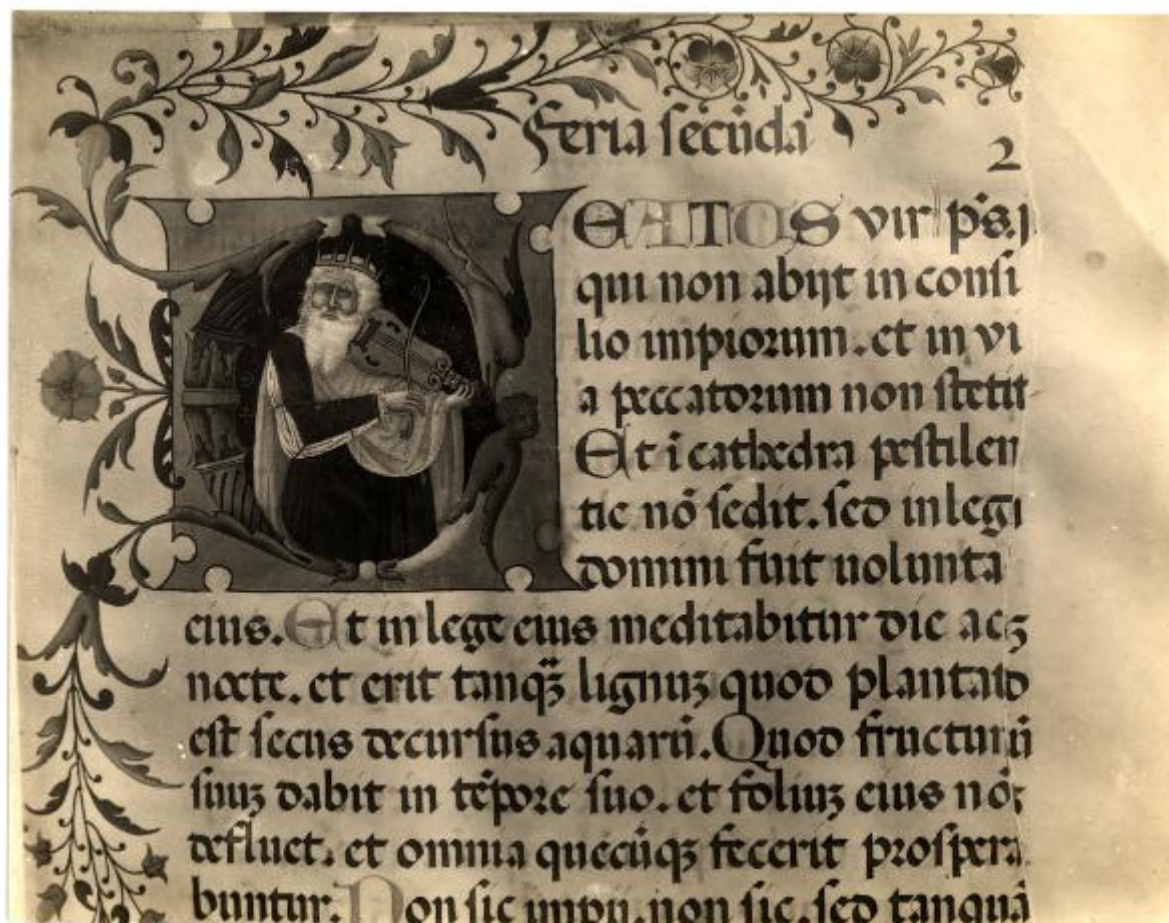 Feria secūda
2
EATOS vir p̄s. j
qui non abijt in consi
lio impiorum. et in vi
a peccatorum non stetit
Et ī cathedra pestilen
tie nō sedit. sed in legi
domini fuit uolunta
eius. Et in lege eius meditabitur die acꝫ
nocte. et erit tanqꝫ̄ lignuꝫ quod plantatō
est secus decursus aquarū. Quod fructum
suuꝫ dabit in tēpore suo. et foliuꝫ eius nōꝫ
defluet. et omnia quecūqꝫ fecerit prospera
buntur. Non sic impij. non sic. sed tanquā